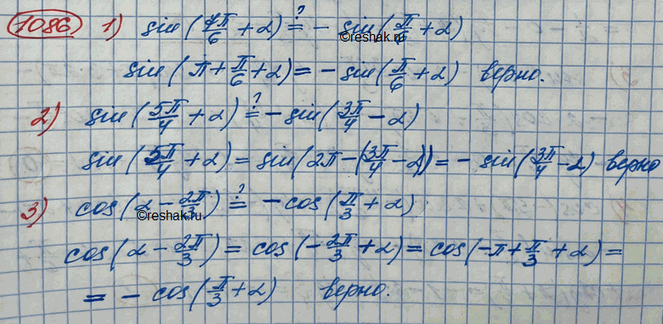 1086 1) sin(7π/6 + α) ?= - sin(π/6 + α)
©reshak.ru
sin(π + π/6 + α) = - sin(π/6 + α) верно.
2) sin(5π/4 + α) ?= - sin(3π/4 - α)
sin(5π/4 + α) = sin(2π - (3π/4 - α)) = - sin(3π/4 - α) верно
3) cos(α - 2π/3) ?= - cos(π/3 + α)
©reshak.ru
cos(α - 2π/3) = cos(-2π/3 + α) = cos(-π + π/3 + α) =
= - cos(π/3 + α) верно.